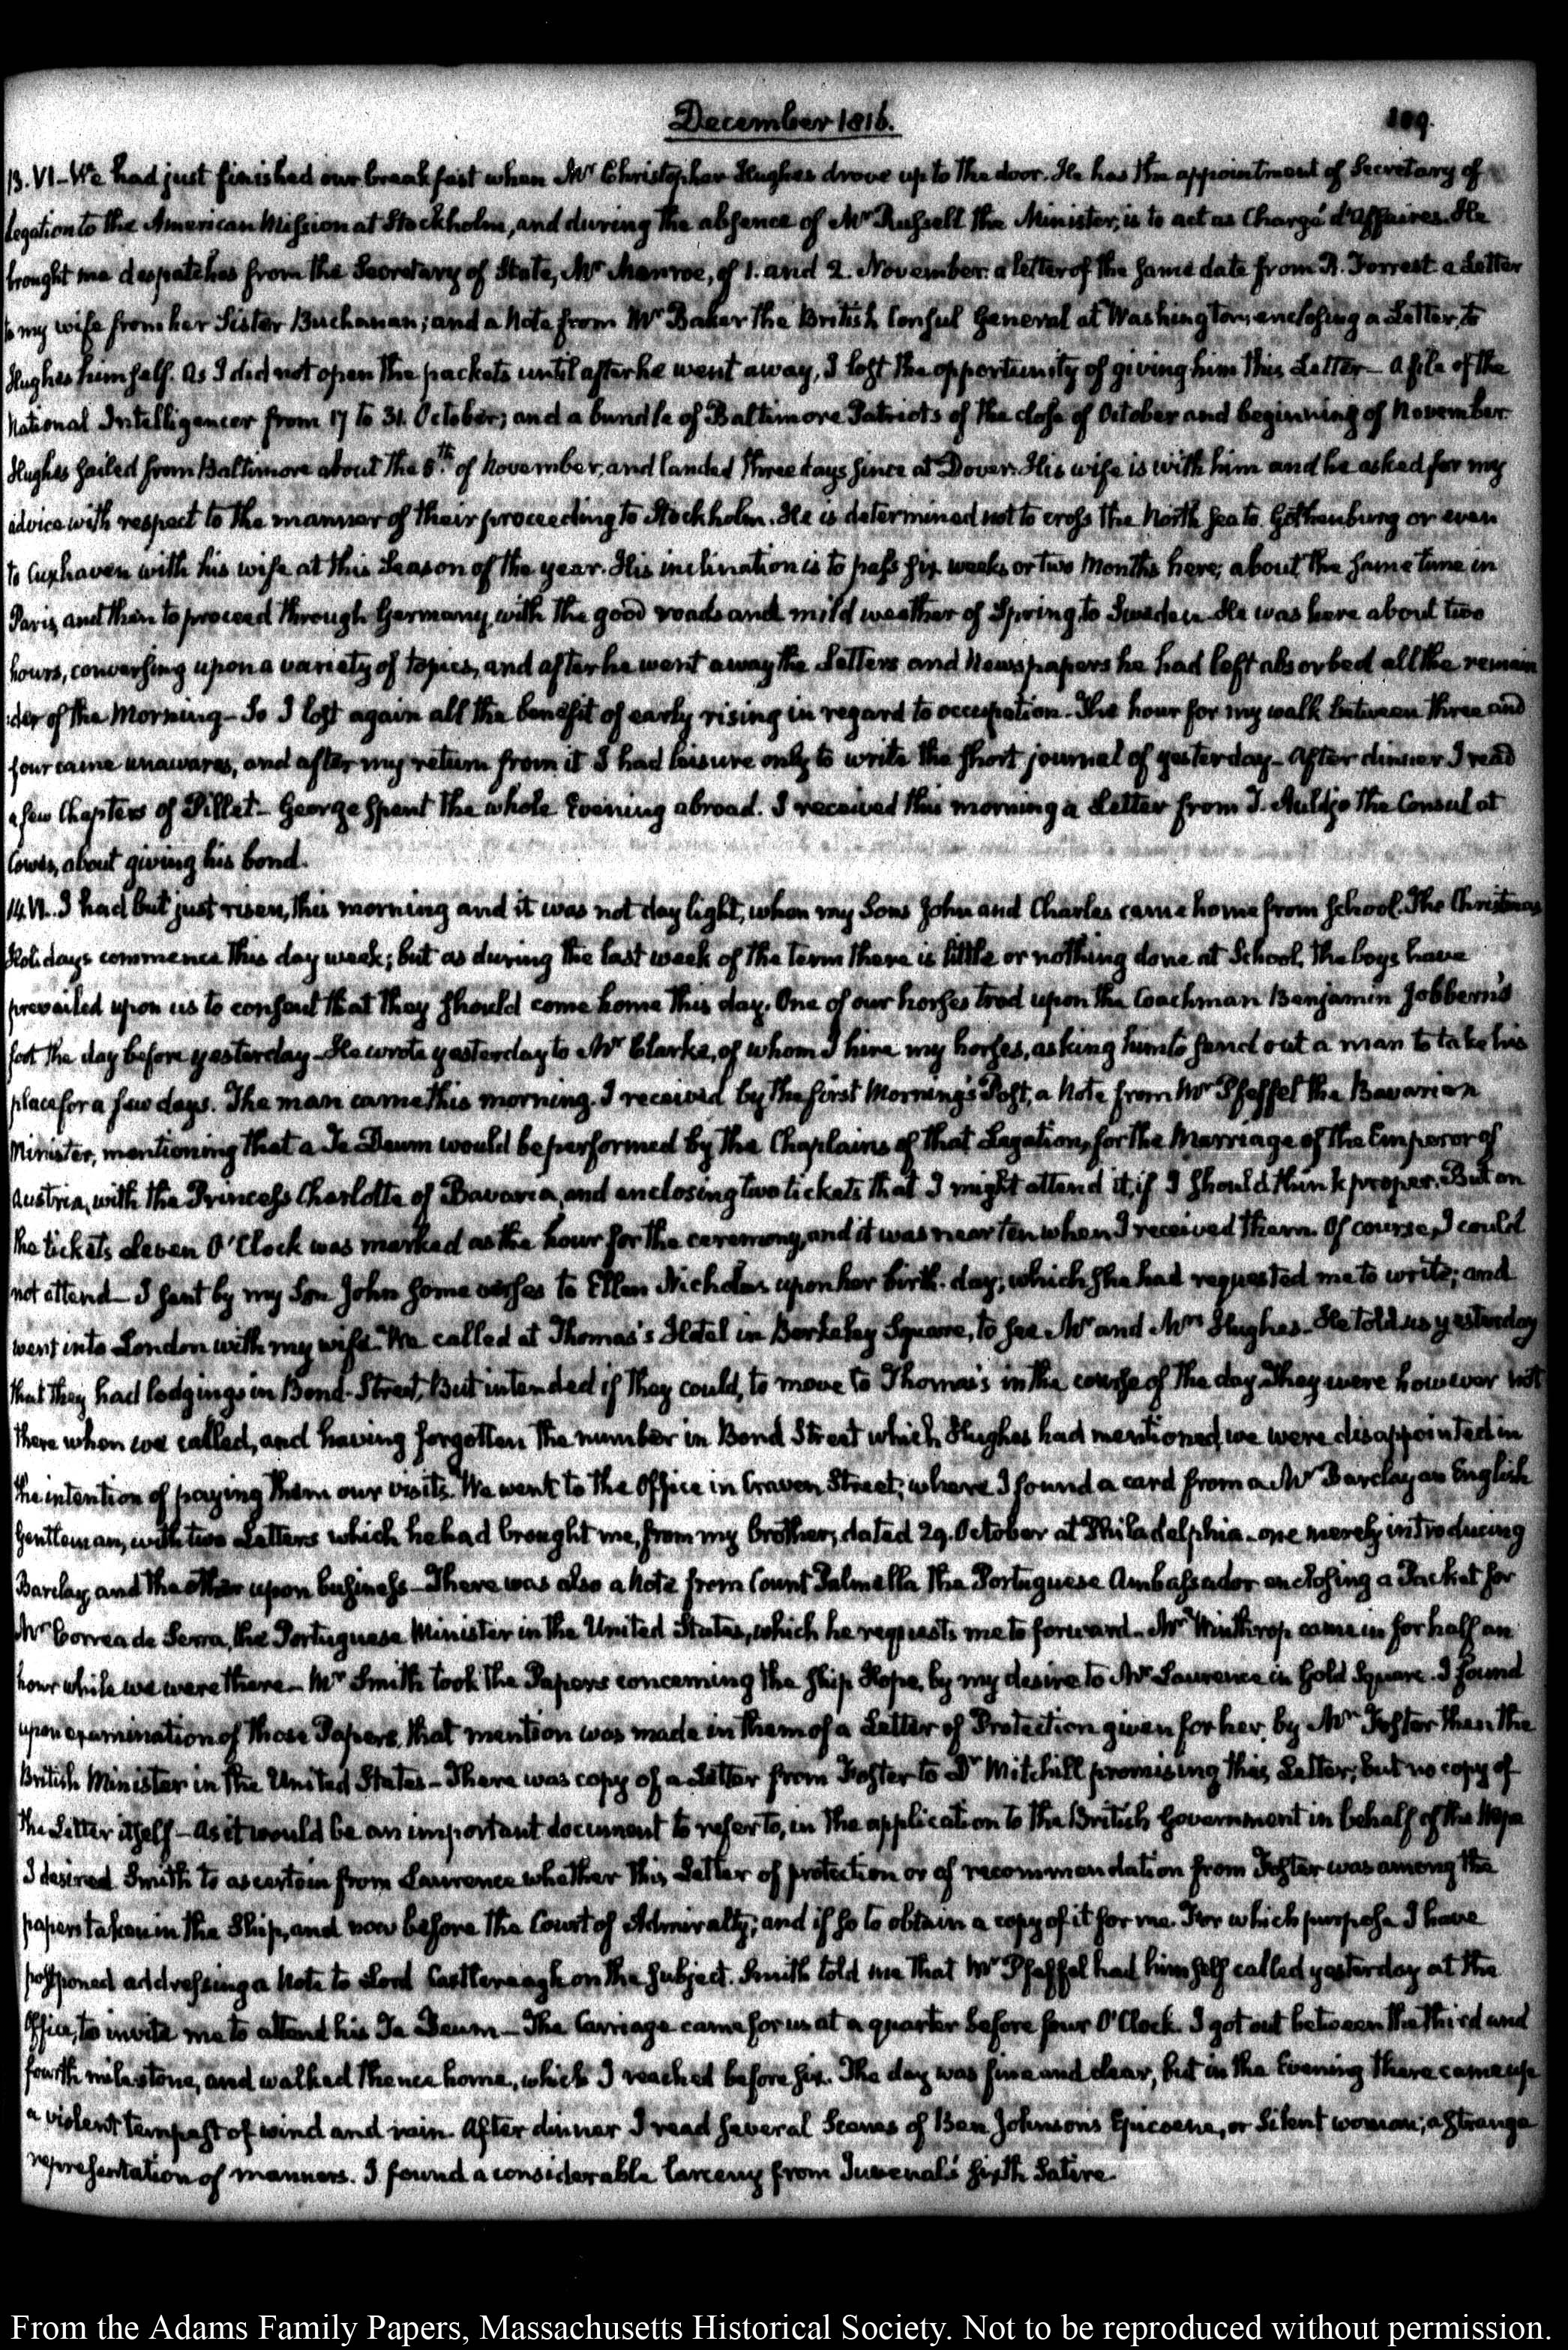 December 1816.
109.
13. VI. We had just finished our breakfast when Mr. Christopher Hughes drove up to the door. He has the appointment of Secretary of
Legation to the American Mission at Stockholm, and during the absence of Mr Russell the Minister, is to act as Chargé d'Affaires. He
brought me despatches from the Secretary of State, Mr Monroe, of 1. and 2. November: a letter of the same date from R. Forrest a Letter
to my wife from her Sister Buchanan; and a Note from Mr Baker the British Consul General at Washington, enclosing a Letter, to
Hughes himself. As I did not open the packets until after he went away, I lost the opportunity of giving him this Letter— A file of the
National Intelligencer from 17 to 31. October; and a bundle of Baltimore Patriots of the close of October and beginning of November.
Hughes sailed from Baltimore about the 8th. of November, and landed three days since at Dover. His wife is with him and he asked for my
advice with respect to the manner of their proceeding to Stockholm. He is determined not to cross the North Sea to Gothenburg or even
to Cuxhaven with his wife at this Season of the year. His inclination is to pass six weeks or two Months here; about the same time in
Paris, and then to proceed through Germany, with the good roads and mild weather of Spring, to Sweden. He was here about two
hours, conversing upon a variety of topics, and after he went away the Letters and Newspapers he had left absorbed all the remain
:der of the Morning— So I lost again all the benefit of early rising in regard to occupation. The hour for my walk between three and
four came unawares, and after my return from it I had leisure only to write the short journal of yesterday— After dinner I read
a few Chapters of Pillet— George spent the whole Evening abroad. I received this morning a Letter from J. Auldjo the Consul at
Cowes, about giving his bond.
14. VI. I had but just risen, this morning and it was not day light, when my Sons John and Charles came home from School. The Christmas
Holidays commence this day week; but as during the last week of the term there is little or nothing done at School, the boys have
prevailed upon us to consent that they should come home this day. One of our horses trod upon the Coachman Benjamin Jobbern's
foot the day before yesterday— He wrote yesterday to Mr Clarke, of whom I hire my horses, asking him to send out a man to take his
place for a few days. The man came this morning. I received by the first Morning's Post, a Note from Mr Pfeffel the Bavarian
Minister, mentioning that a Te Deum would be performed by the Chaplains of that Legation, for the Marriage of the Emperor of
Austria, with the Princess Charlotte of Bavaria, and enclosing two tickets that I might attend it, if I should think proper. But on
the tickets eleven O'Clock was marked as the hour for the ceremony, and it was near ten when I received them. Of course, I could
not attend— I sent by my Son John some verses to Ellen Nicholas upon her birth-day; which she had requested me to write; and
went into London with my wife. We called at Thomas's Hotel in Berkeley Square, to see Mr and Mrs Hughes. He told us yesterday
that they had lodgings in Bond-Street, But intended if they could, to move to Thomas's in the course of the day. They were however not
there when we called, and having forgotten the number in Bond Street which Hughes had mentioned, we were disappointed in
the intention of paying them our visits. We went to the Office in Craven Street; where I found a card from a Mr Barclay an English
Gentleman, with two Letters which he had brought me, from my brother, dated 29. October at Philadelphia— one merely introducing
Barclay, and the other upon business— There was also a Note from Count Palmella the Portuguese Ambassador enclosing a Packet for
Mr Correa de Serra, the Portuguese Minister in the United States, which he requests me to forward. Mr Winthrop came in for half an
hour while we were there— Mr Smith took the Papers concerning the ship Hope, by my desire to Mr Lawrence in Gold Square. I found
upon examination of those Papers, that mention was made in them of a Letter of Protection given for her, by Mr Foster then the
British Minister in the United States— There was copy of a Letter from Foster to Dr Mitchill promising this Letter; but no copy of
the Letter itself— As it would be an important document to refer to, in the application to the British Government in behalf of the Hope
I desired Smith to ascertain from Lawrence whether this Letter of protection or of recommendation from Foster was among the
papers taken in the Ship, and now before the Court of Admiralty; and if so to obtain a copy of it for me. For which purpose I have
postponed addressing a Note to Lord Castlereagh on the subject. Smith told me that Mr Pfeffel had himself called yesterday at the
Office, to invite me to attend his Te Deum— The Carriage came for us at a quarter before four O'Clock. I got out between the third and
fourth milestone, and walked thence home, which I reached before six. The day was fine and clear, but in the Evening there came up
a violent tempest of wind and rain. After dinner I read several Scenes of Ben Johnson's Epicoene, or Silent woman; a strange
representation of manners. I found a considerable larceny from Juvenal's sixth Satire.
From the Adams Family Papers, Massachusetts Historical Society. Not to be reproduced without permission.